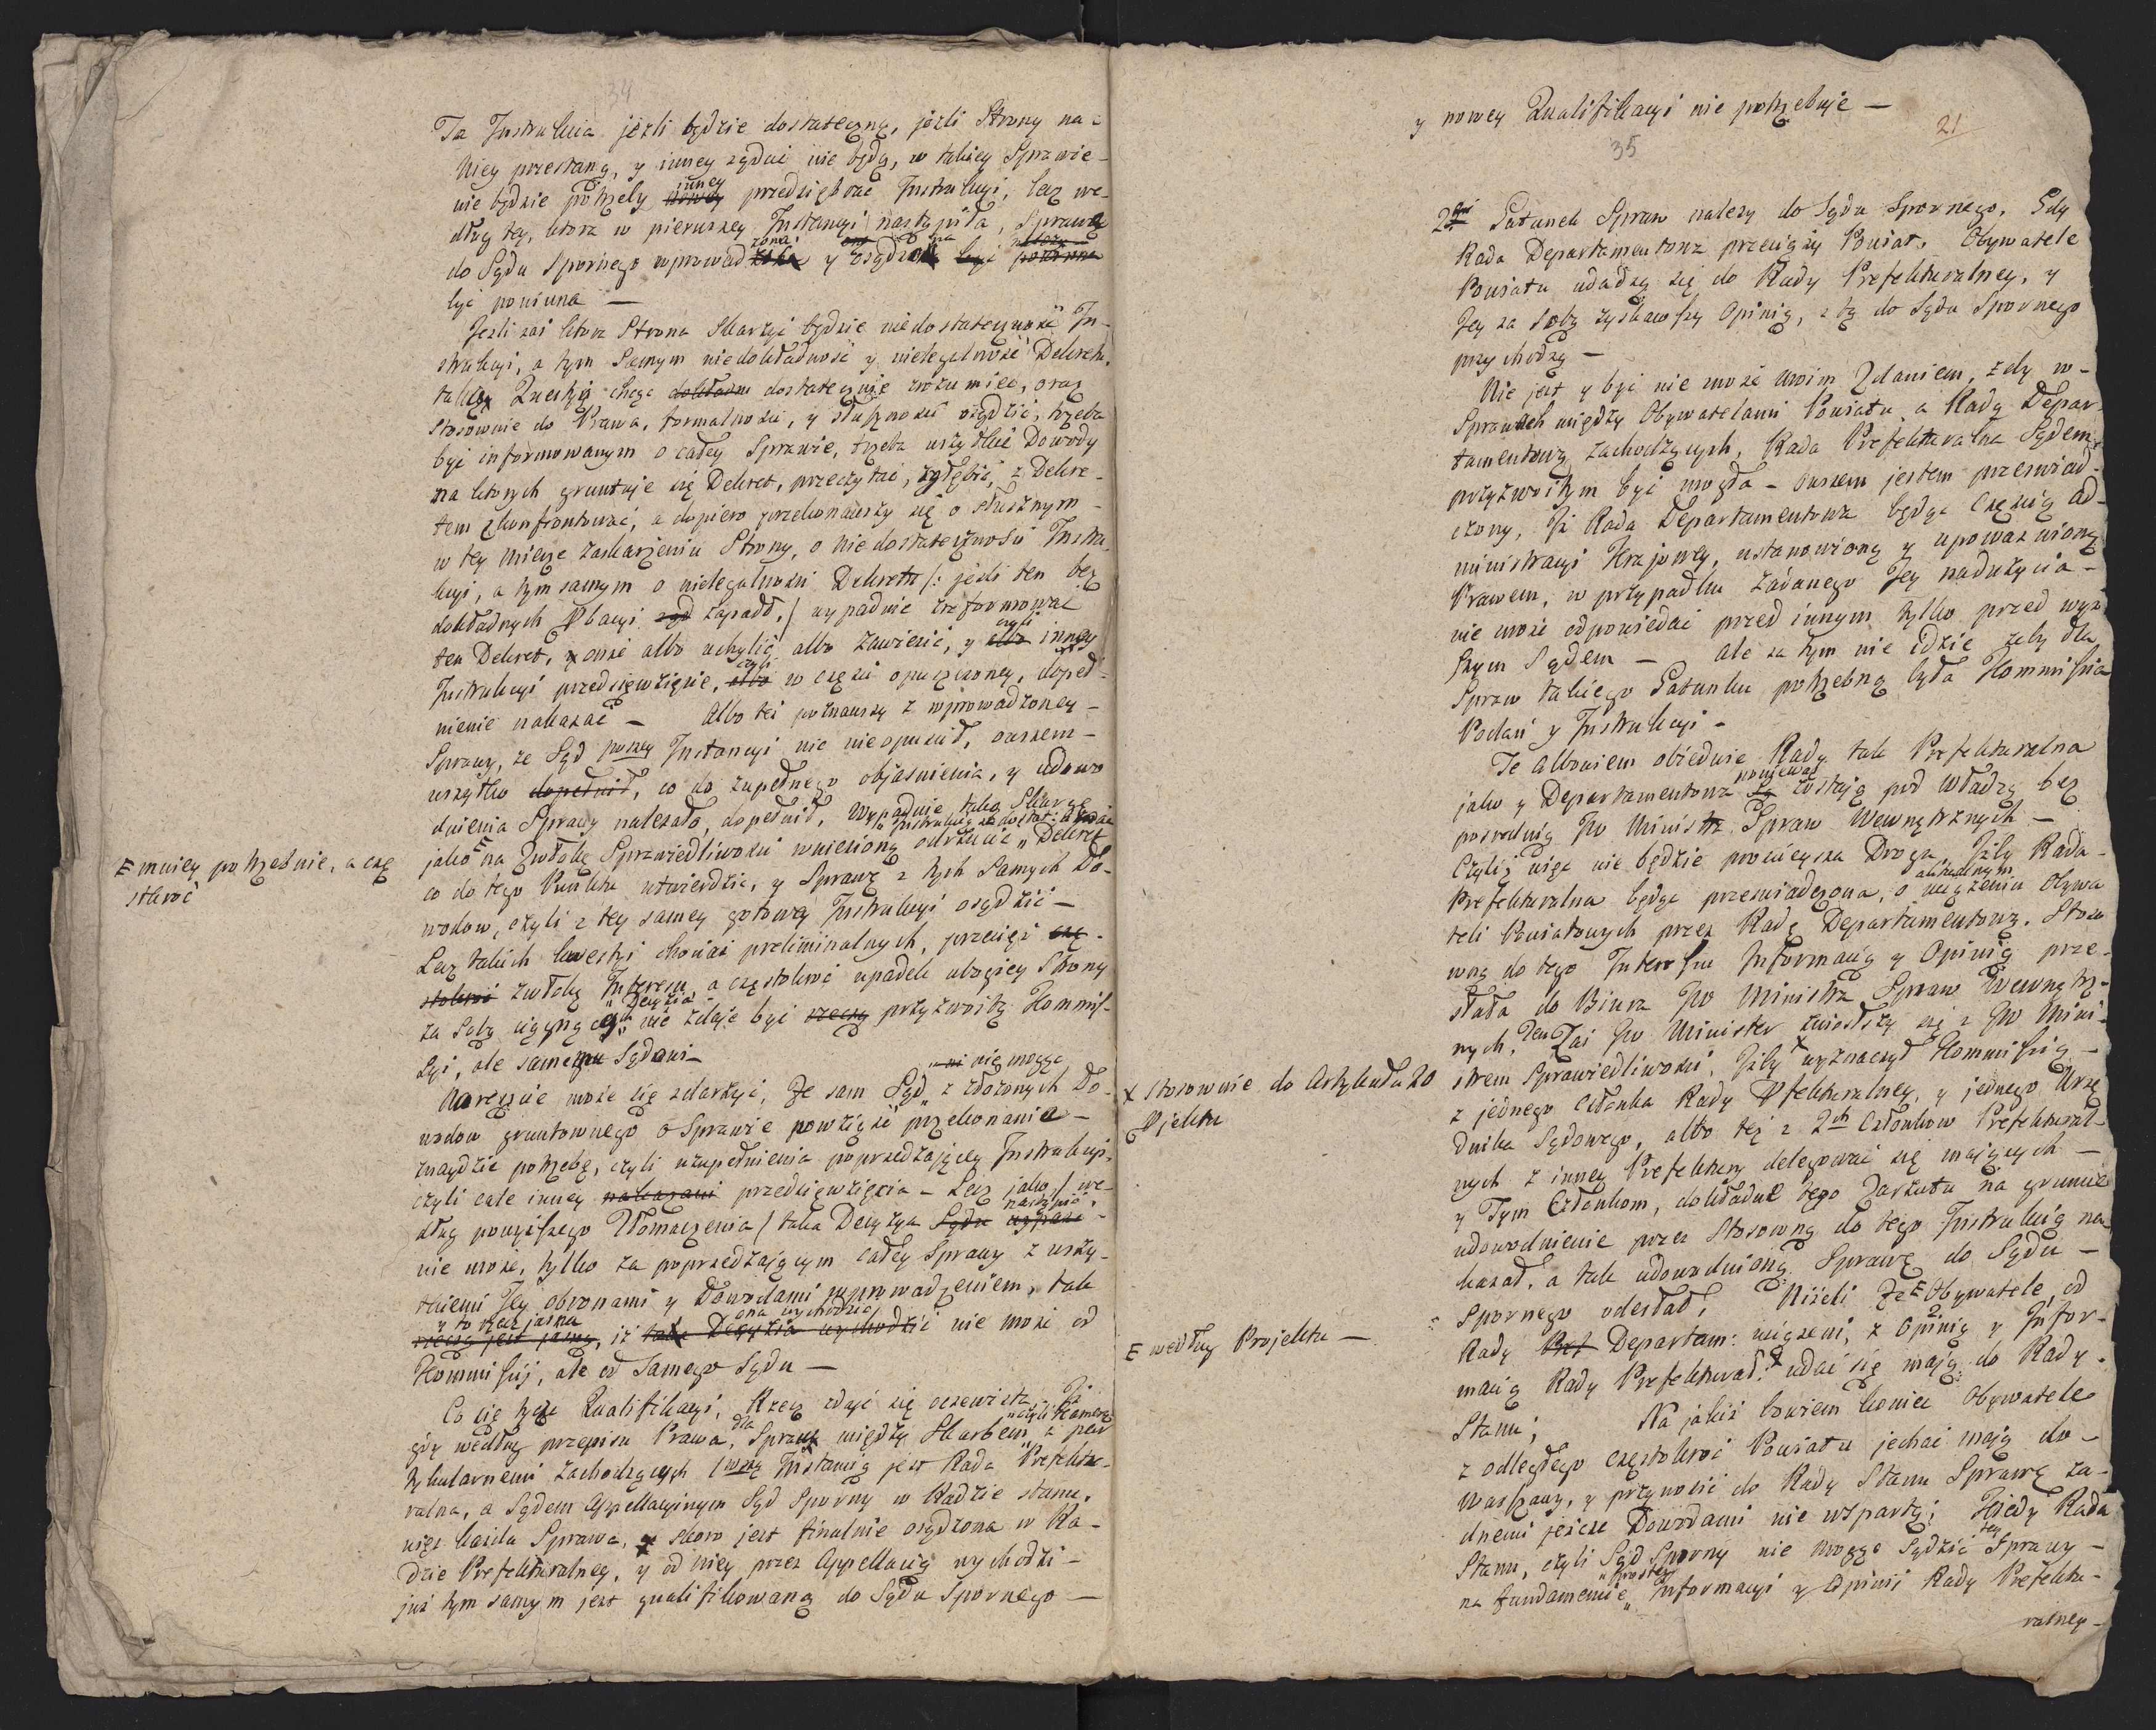 34
Ta Instrukcia jeżli będzie dostateczną, jeżli Strony na-
Niey przestaną, y inney żądać nie będą, w takiey Sprawie-
nie będzie potrzeby nowey inney przedsiębrać Instrukcyi, lecz we-
dług tey, ktora w pierwszey Instancyi nastąpiła, Sprawa
do Sądu Spornego wprowadzona y osądzona
być powinna —
Jeżli zaś ktora Strona Skarżyć będzie niedostateczność In-
strukcyi, a tym Samym niedokładność y nielegalność Dekretu,
Kwestyi chcąc dokładnie dostatecznie zrozumieć, oraz
Stosownie do Prawa, formalności, y słuszności osądzić, trzeba
być informowanym o całey Sprawie, trzeba wszystkie Dowody
na ktorych gruntuje się Dekret, przeczytać, zgłębić, z Dekre-
tem skonfrontować, a dopiero przekonawszy się o słusznym-
w tey mierze zaskarżeniu Strony, o niedostateczności Instru-
kcyi, a tym samym o nielegalności Dekretu /: jeżli ten bez
dokładnych zapadł, / wypadnie zreformować
ten Dekret, y onże albo uchylić albo zawiesić, y albo czyli inney
Instrukcyi przedsięwzięcie, albo czyli w części opuszczoney, dopeł-
nienie nakazać — Albo też poznawszy z wprowadzoney-
Sprawy, że Sąd Instancyi nic nieopuścił, owszem-
wszystko dopełnił, co do zupełnego objaśnienia, y udowo
dnienia Sprawy należało, dopełnił, Wypadnie taką Skargę
jako E na Zwłokę Sprawiedliwości wniesioną odrzucić „ Dekret
E mniey potrzebnie, a czę
stokroć
co do tego Punktu utwierdzić, y Sprawę z tych Samych Do-
wodow, czyli z tey samey gotowey Instrukcyi osądzić —
Lecz takich kwestyi chociaż preliminalnych, przecięż czę-
stokroć zwłokę Interesu, a częstokroć upadek ubogiey Strony
za Sobą ciągnących „ Decyzia nie zdaje być rzeczą przyzwoitą Kommis-
syi, ale samemu Sądowi —
Nareszcie może się zdarzyć, że sam Sąd „ nie mogąc z złożonych Do-
wodow gruntownego o Sprawie powziąść przekonania —
znaydzie potrzebę, czyli uzupełnienia poprzedzającey Instrukcyi,
czyli całe inney nakazani przedsięwzięcia — Lecz jako / we-
dług powyższego Tłomaczenia / taka Decyzya Sądu nastąpić
nie może, tylko za poprzedzającym całey Sprawy z wszy-
stkiemi Jey obronami y Dowodami wprowadzeniem, tak
y to rzecz jasna rzeczą jest jasną, iż ona wychodzić taka Decyzia wychodzić nie może od
Kommissyi, ale od Samego Sądu —
Co się tycze Kwalifikacyi, Rzecz zdaje się oczewista, Iż
gdy według przepisu Prawa, dla Spraw między Skarbem, a par
tykularnemi zachodzących 1wszą Instancią jest Rada Prefektu-
ralna, a Sądem Appellacyinym Sąd Sporny w Radzie stanu,
więc każda Sprawa, skoro jest finalnie osądzona w Ra-
dzie Prefekturalney, y od niey przez Appellacią wychodzi —
już tym samym jest qualifikowaną do Sądu Spornego —
y nowey Kwalifikacyi nie potrzebuje —
21
35
2gi Gatunek Spraw należy do Sądu Spornego, Gdy
Rada Departamentowa przeciąży Powiat. Obywatele
Powiatu udadzą się do Rady Prefekturalney, y
Jey za Sobą zyskawszy Opinią, z tą do Sądu Spornego
przychodzą —
Nie jest y być nie może moim Zdaniem, żeby w-
Sprawach między Obywatelami Powiatu a Radą Depar-
tamentową zachodzących, Rada Prefekturalna Sądem,
przyzwoitym być mogła — owszem jestem przeswiad-
czony, Iż Rada Departamentowa będąc Częścią Ad-
ministracyi Krajowey, ustanowioną y upoważnioną
Prawem, w przypadku żadanego Jey nadużycia —
nie może odpowiedać przed innym tylko przed wyż-
szym Sądem — Ale za tym nie idzie żeby dla
Spraw takiego Gatunku potrzebną była Kommissia
Podań y Instrukcyi —
Te albowiem obiedwie Rady tak Prefekturalna
jako y Departamentowa ponieważ zostają pod Władzą bez
posrednią JW Ministra Spraw Wewnętrznych —
Czyliż więc nie będzie prościeysza Droga, Iżby Rada-
Prefekturalna będąc przeswiadczona, o uciążeniu Obywa
teli Powiatowych przez Radę Departamentową. Stoso
wną do tego Interessu Informacią y Opinią prze-
słała do Biura JW Ministra Spraw Wewnętrz-
nych, Ten Zaś JW Minister zniosłszy się z JW Mini-
strem Sprawiedliwości, Iżby X wyznaczył Kommissią —
X stosownie do Artykułu 20
Pjektu
z jednego Członka Rady Pfekturalney, y jednego Urzę
dnika Sądowego, albo też z 2ch Członkow Prefektural-
nych z inney Prefektury delegować się mających —
y Tym Członkom, dokładne tego Zarzutu na gruncie
udowodnienie przez Stosowną do tego Instrukcią na-
kazał, a tak udowodnioną Sprawę do Sądu —
Spornego odesłał, Niżeli Że E Obywatele, od
E według Projektu —
Rady Pref Departam: uciążeni, z Opinią y Infor-
macią Rady Prefektural: udać się mają do Rady
Stanu; Na jakiż bowiem koniec Obywatele
z odległego częstokroć Powiatu jechać mają do —
Warszawy, y przynosić do Rady Stanu Sprawę ża-
dnemi jeszcze Dowodami nie wspartą; Kiedy Rada
Stanu, czyli Sąd Sporny nie mogąc Sądzić tey Sprawy —
na fundamencie „ prostey Informacyi y Opinii Rady Prefektu-
ralney —